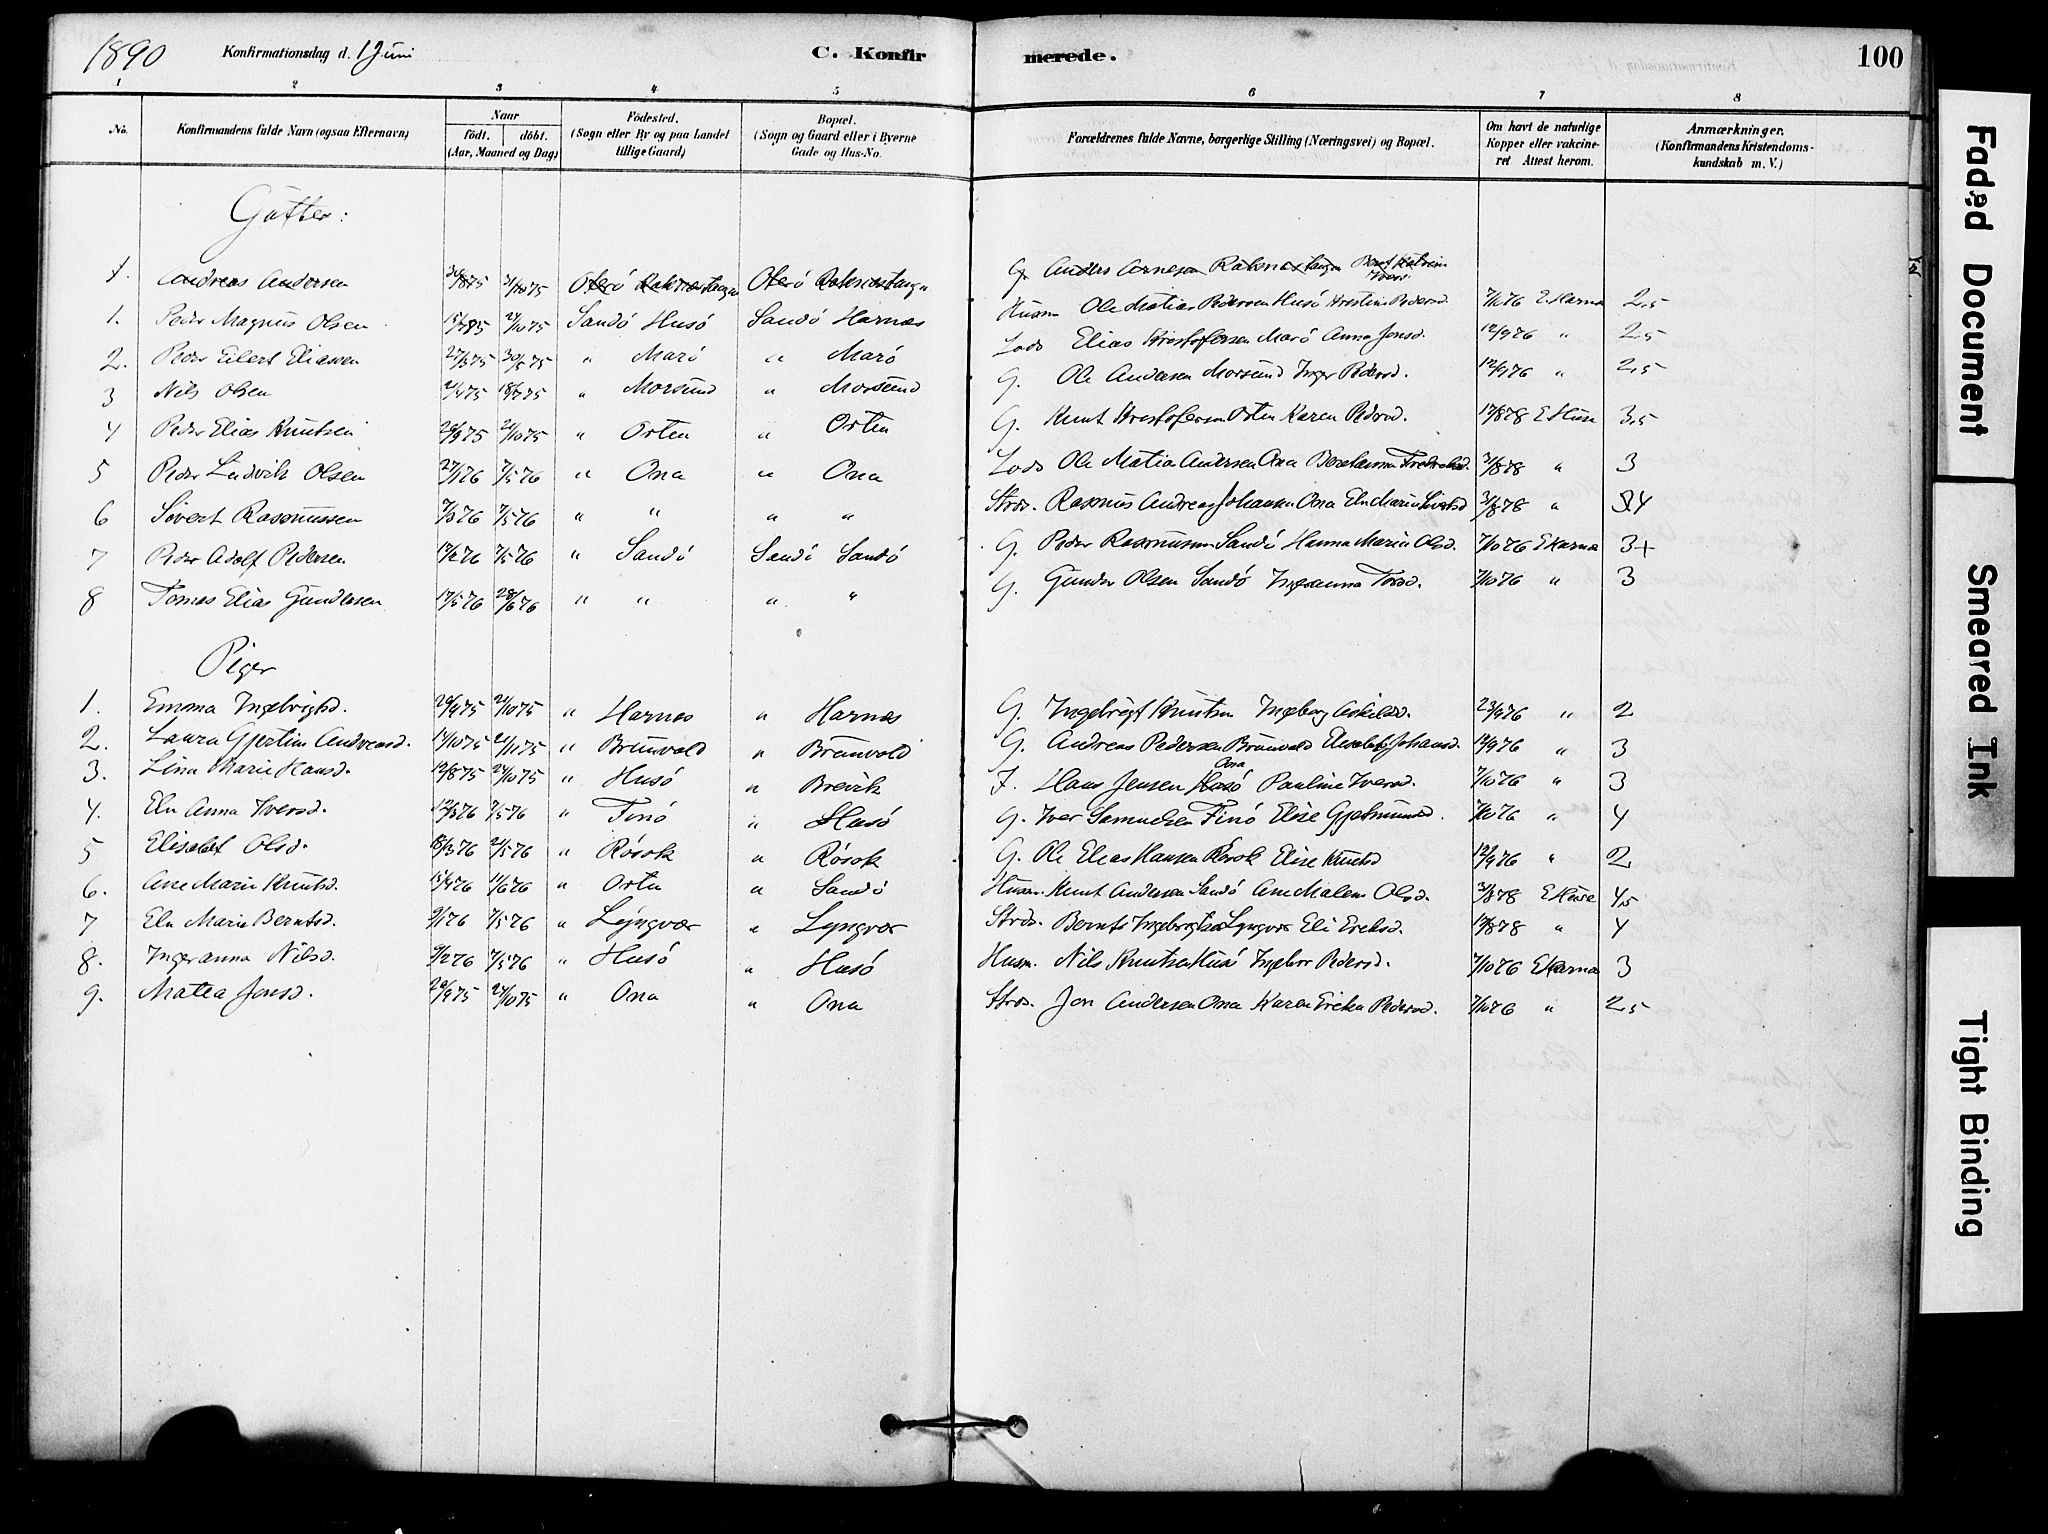 1890 Konfirmationsdag d. 1 Juni C. Konfirmerede. 100
1 2 3 4 5 6 7 8
No. Konfirmandens fulde Navn (ogsaa Efternavn) Naar födt. döbt. (Aar, Maaned og Dag) Födested. (Sogn eller By og paa Landet tillige Gaard) Bopæl. (Sogn og Gaard eller i Byerne Gade og Hus-No. Forældrenes fulde Navne, borgerlige Stilling (Næringsvei) og Bopæl. Om havt de naturlige Kopper eller vakcineret Attest herom. Anmærkninger. (Konfirmandens Kristendomskundskab m. V.)
Gutter:
1. Andreas Andersen Oterö Raknestangen Oterö Raknestangn G. Anders Arnesen Raknestangen
1. Peder Magnus Olsen 15/785 24/1075 Sandö Husö Sandö Harnæs Husm Ole Matias Pedersen Husö Pedersd. 7/1076 E Harnæ 2,5
2. Peder Eilert Eliassen 27/375 30/575 " Marö " Marö Lods Elias Kristofersen Marö Anna Jonsd. 12/976 " 2,5
3 Nils Olsen 21/475 18/775 " Morsund " Morsund G. Ole Andersen Morsund Inger Pedersd. 12/976 " 2,5
4 Peder Elias Knutsen 29/975 24/1075 " Orten " Orten G. Knut Kristofersen Orten Karen Pedersd. 17/878 E Huse 3,5
5 Peder Ludvik Olsen 27/176 7/576 " Ona " Ona Lods Ole Matias Andersen Ona 31/878 " 3
6 Sivert Rasmussen 7/376 7/576 " " " " Strds. Rasmus Andreas Johansen Ona Eln Marie Sivertsd 31/878 " 4
7 Peder Adolf Pedersen 17/276 7/576 " Sandö Sandö Sandö G. Peder Rasmussen Sandö Hanna Marie Olsd. 7/1076 E Harnæ 3+
8 Tomas Elias Gundersen 17/576 28/676 " " " " G. Gunder Olsen Sandö Ingeranna Torsd. 7/1076 " 3
Piger
1. Emma Ingebrigtsd. 29/975 24/1075 " Harnes " Harnes G. Ingebrigt Knutsen Ingeborg Askilsd. 23/976 " 2
2. Laura Gjertine Andreasd. 14/1075 21/1175 " Brunvold " Brunvold G. Andreas Pedersen Brunvold Elisabet Johansd. 12/976 " 3
3. Lina Marie Hansd. 19/875 24/1075 " Husö " Brevik F. Hans Jensen Husö Ona Pauline Iversd. 7/1076 " 3
4. Eln Anna Iversd. 12/376 7/576 " Finö " Husö G. Iver Samuelsen Finö Elise Gjermundsd. 7/1076 " 4
5 Elisabet Olsd. 18/376 21/576 " Rösok " Rösok G. Ole Elias Hansen Rösok Elise Knutsd 12/976 " 2
6. Ane Marie Knutsd. 15/476 11/676 " Orten " Sandö Husm. Knut Andersen Sandö Ane Malene Olsd. 31/878 E Huse 4,5
7 Eln Marie Berntsd. 9/176 7/576 " Lyngvær " Lyngvær Strds. Bernt Ingebrigtsen Lyngvær Eli Eriksd. 17/878 " 4
8. Ingeranna Nilsd. 9/276 7/576 " Husö " Husö Husm. Nils Knutsen Husö Ingebor Pedersd. 7/1076 E Harnæ 3
9. Matea Jonsd. 20/975 24/1075 " Ona " Ona Strds. Jon Andersen Ona Karen Erika Pedersd. 7/1076 " 2,5
Faded Document
Smeared Ink
Tight Binding